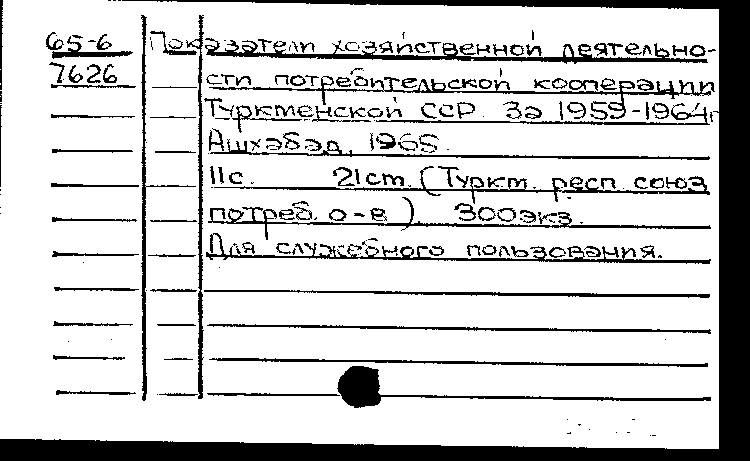 65-6 Показатели хозяйственной деятельно-
7626 сти потребительской кооперации
Туркменской ССР за 1959-1964г
Ашхабад, 1965.
11с. 21cm. (Туркм. респ. союз
потреб. о-в). 300экз.
Для служебного пользования.